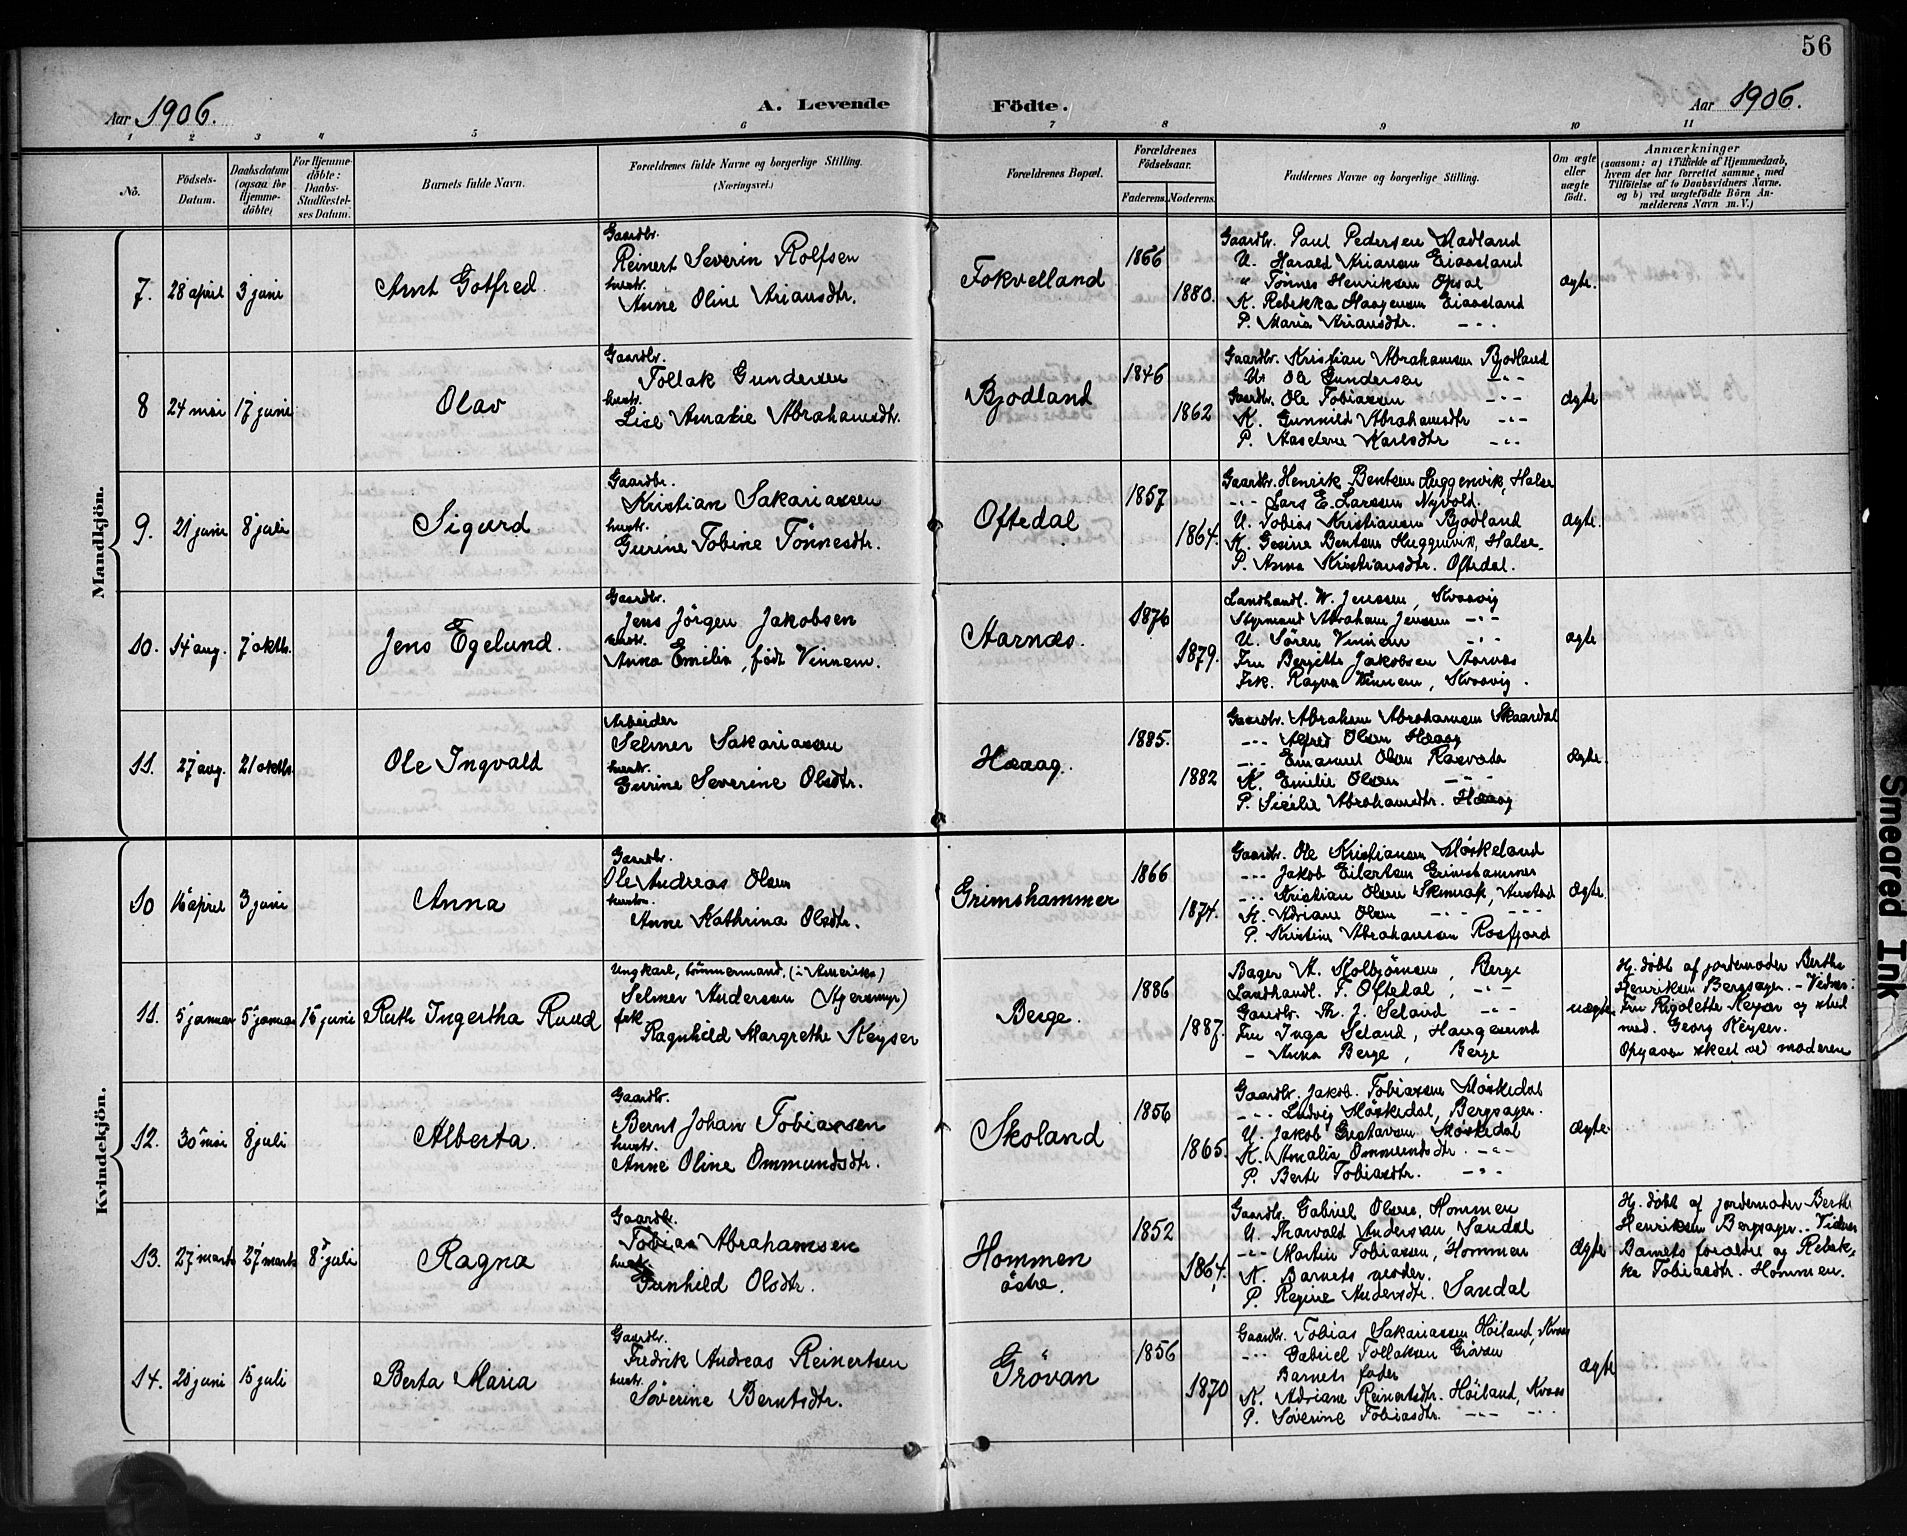 56
Aar 1906.
A. Levende Födte.
Aar 1906.
1 2 3 4 5 6 7 8 9 10 11
No.
Födsels-Datum.
Daabsdatum (ogsaa for Hjemme-döbte)
For Hjemme-döbte: Daabs-Stadfæstel-ses Datum.
Barnets fulde Navn.
Forældrenes fulde Navne og borgerlige Stilling. (Næringsvei.)
Forældrenes Bopæl.
Forældrenes Födselsaar.
Faderens. Moderens.
Faddernes Navne og borgerlige Stilling.
Om ægte eller uægte födt.
Anmærkninger
(saasom: a) i Tilfælde af Hjemmedaab,
hvem der har forrettet samme, med
Tilföielse af to Daabsvidners Navne,
og b) ved uægtefödte Börn An-
melderens Navn m. V.)
Mandkjön.
7. 28 april 3 juni Arnt Gotfred.
Gaardbr.
Reinert Severin Rolfsen
hustr.
Anne Oline Ariansdtr.
Fokvelland 1866 1880.
Gaardbr. Paul Pedersen Aadland
U. Harald Ariansen Eiaasland
" Tönnes Henriksen Opsal
K. Rebekka Haagensen Eiaasland
P. Maria Ariansdtr. -"-
ægte.
8 24 mai 17 juni Olav
Gaardbr.
Tollak Gundersen
hustr.
Lise Amalie Abrahamsdtr.
Bjodland 1846 1862
Gaardbr. Kristian Abrahamsen Bjodland
U. Ole Gundersen -"-
Gaardbr. Ole Tobiassen -"-
K. Gunnild Abrahamsdtr -"-
P. Aaselene Karlsdtr -"-
ægte
9. 21 juni 8 juli Sigurd
Gaardbr.
Kristian Sakariassen
hustr.
Gurine Tobine Tönnesdtr.
Oftedal 1857 1864.
Gaardbr. Henrik Bentsen Huggenvik, Halse
-"- Lars E. Larssen Nyvold.
U. Tobias Kristiansen Bjodland
K. Gesine Bentsen Huggenvik, Halse.
P. Anna Kristiansdtr. Oftedal.
ægte.
10. 14 aug. 7 oktb. Jens Egelund.
Gaardbr.
Jens Jörgen Jakobsen
hustr.
Anna Emilia, födt Vinnem.
Aarnæs. 1876 1879.
Landhandl. W. Jenssen, Kvaavig
Styrmand Abraham Jenssen -"-
U. Sören Vinnem -"-
Fru Bergitte Jakobsen Aarnæs
Frk. Ragna Vinnem, Kvaavig.
ægte
11. 27 aug. 21 oktb. Ole Ingvald
Arbeider
Selmer Sakariassen
hustr.
Gurine Severine Olsdtr.
Haaag. 1885. 1882
Gaardbr. Abraham Abrahamsen Skaardal
-"- Alfred Olsen Haaag
-"- Emanuel Olsen
K. Emilie Olsen -"-
P. Abrahamsdtr. Haaag
Ægte.
Kvindekjön.
10 16 april 3 juni Anna
Gaardbr.
Ole Andreas Olsen
hustru
Anne Kathrina Olsdtr.
Grimshammer 1866 1874.
Gaardbr. Ole Kristiansen Möskeland
-"- Jakob Eilertsen Grimshammer
-"- Kristian Olsen
K. Adriane Olsen -"- -"-
P. Kristine Abrahamsen Rosfjord
Ægte.
11. 5 januar 5 januar 15 juni Ruth Ingertha Ruud
Ungkarl, tömmermand, (i Amerika)
Selmer Andersen (Agersmyr)
frk
Ragnhild Margrethe Keyser
Berge. 1886 1887.
Bager A. Kolbjörnsen, Berge
Landhandl. T. Oftedal, -"-
Gaardbr. Th. J. Seland -"-
Fru Inga Seland, Haugesund
- Anna Berge, Berge
uægte.
Hj. döbt af jordemoder Berthe
Henriksen Bergsager. - Vidner:
Fru Rigolette Keyser og stud
med. Georg Keyser.
Opgaven skeet ved moderen
12. 30 mai 8 juli Alberta.
Gaardbr.
Bernt Johan Tobiassen
hustr.
Anne Oline Ommundsdtr.
Skoland 1856 1865.
Gaardbr. Jakob Tobiassen Möskedal
-"- Ludvig Möskedal, Bergsager.
U. Jakob Gustavsen Möskedal
K. Amalia Ommundsdtr. -"-
P. Berte Tobiasdtr. -"-
ægte.
13. 27 marts 27 marts 8 juli Ragna
Gaardbr.
Tobias Abrahamsen
hustr.
Gunhild Olsdtr.
Hommen östre. 1852 1864.
Gaardbr. Gabriel Olsen, Hommen
U. Tharvald Andersen, Sandal
-"- Martin Tobiassen, Hommen
K. Barnets moder.
P. Regine Andersdtr. Sandal
Ægte
Hj. döbt af jordemoder Berthe
Henriksen Bergsager. - Vidner
Barnets forældre og Rebek-
ka Tobiasdtr. Hommen.
14. 20 juni 15 juli Berta Maria
Gaardbr.
Fredrik Andreas Reinertsen
hustr.
Söverine Berntsdtr.
Grövan 1856 1870
Gaardbr. Tobias Sakariassen Höiland, Kvaas
-"- Gabriel Tollaksen Grövan
Barnets fader
K. Adriane Reinertsdtr. Höiland, Kvaas
P. Söverine Tobiasdtr. -"- -"-
ægte
Smeared Ink